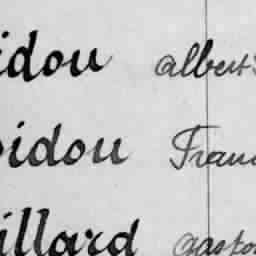 idou albert
oidou Franc
illard gaston